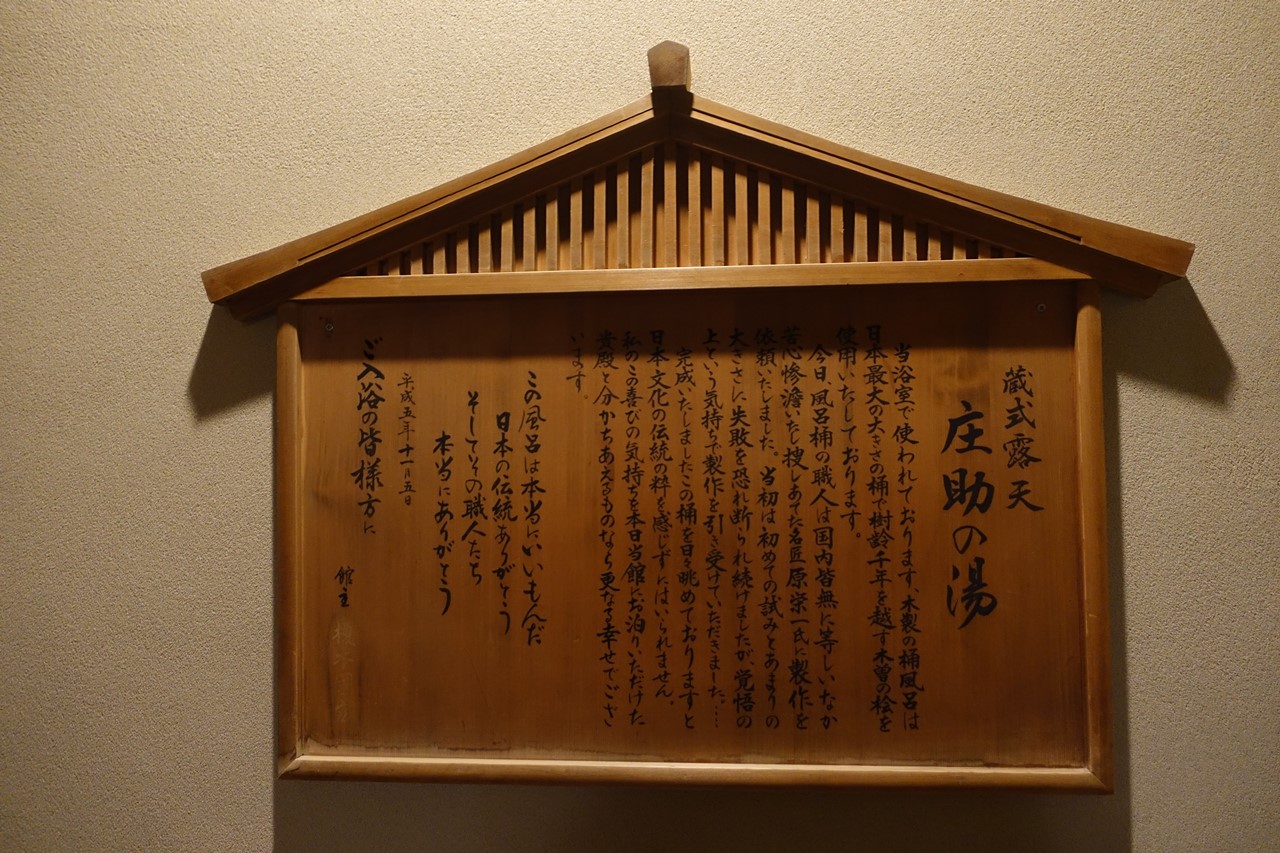 蔵式露天
庄助の湯
当浴室で使われております、木製の桶風呂は
日本最大の大きさの桶で樹齢千年を越す木曽の桧を
使用いたしております。
今日、風呂桶の職人は国内皆無に等しいなか
苦心惨澹いたし捜しあてた名匠原栄一氏に製作を
依頼いたしました。当初は初めての試みとあまりの
大きさに失敗を恐れ断られ続けましたが、覚悟の
上という気持ちで製作を引き受けていただきました。…
完成いたしましたこの桶を日々眺めておりますと
日本文化の伝統の粋を感じずにはいられません。
私のこの喜びの気持ちを本日当館にお泊りいただけた
貴殿と分かちあえるものなら更なる幸せでござ
います。
この風呂は本当にいいもんだ
日本の伝統ありがとう
そしてその職人たち
本当にありがとう
平成五年十一月五日
ご入浴の皆様方に
館主